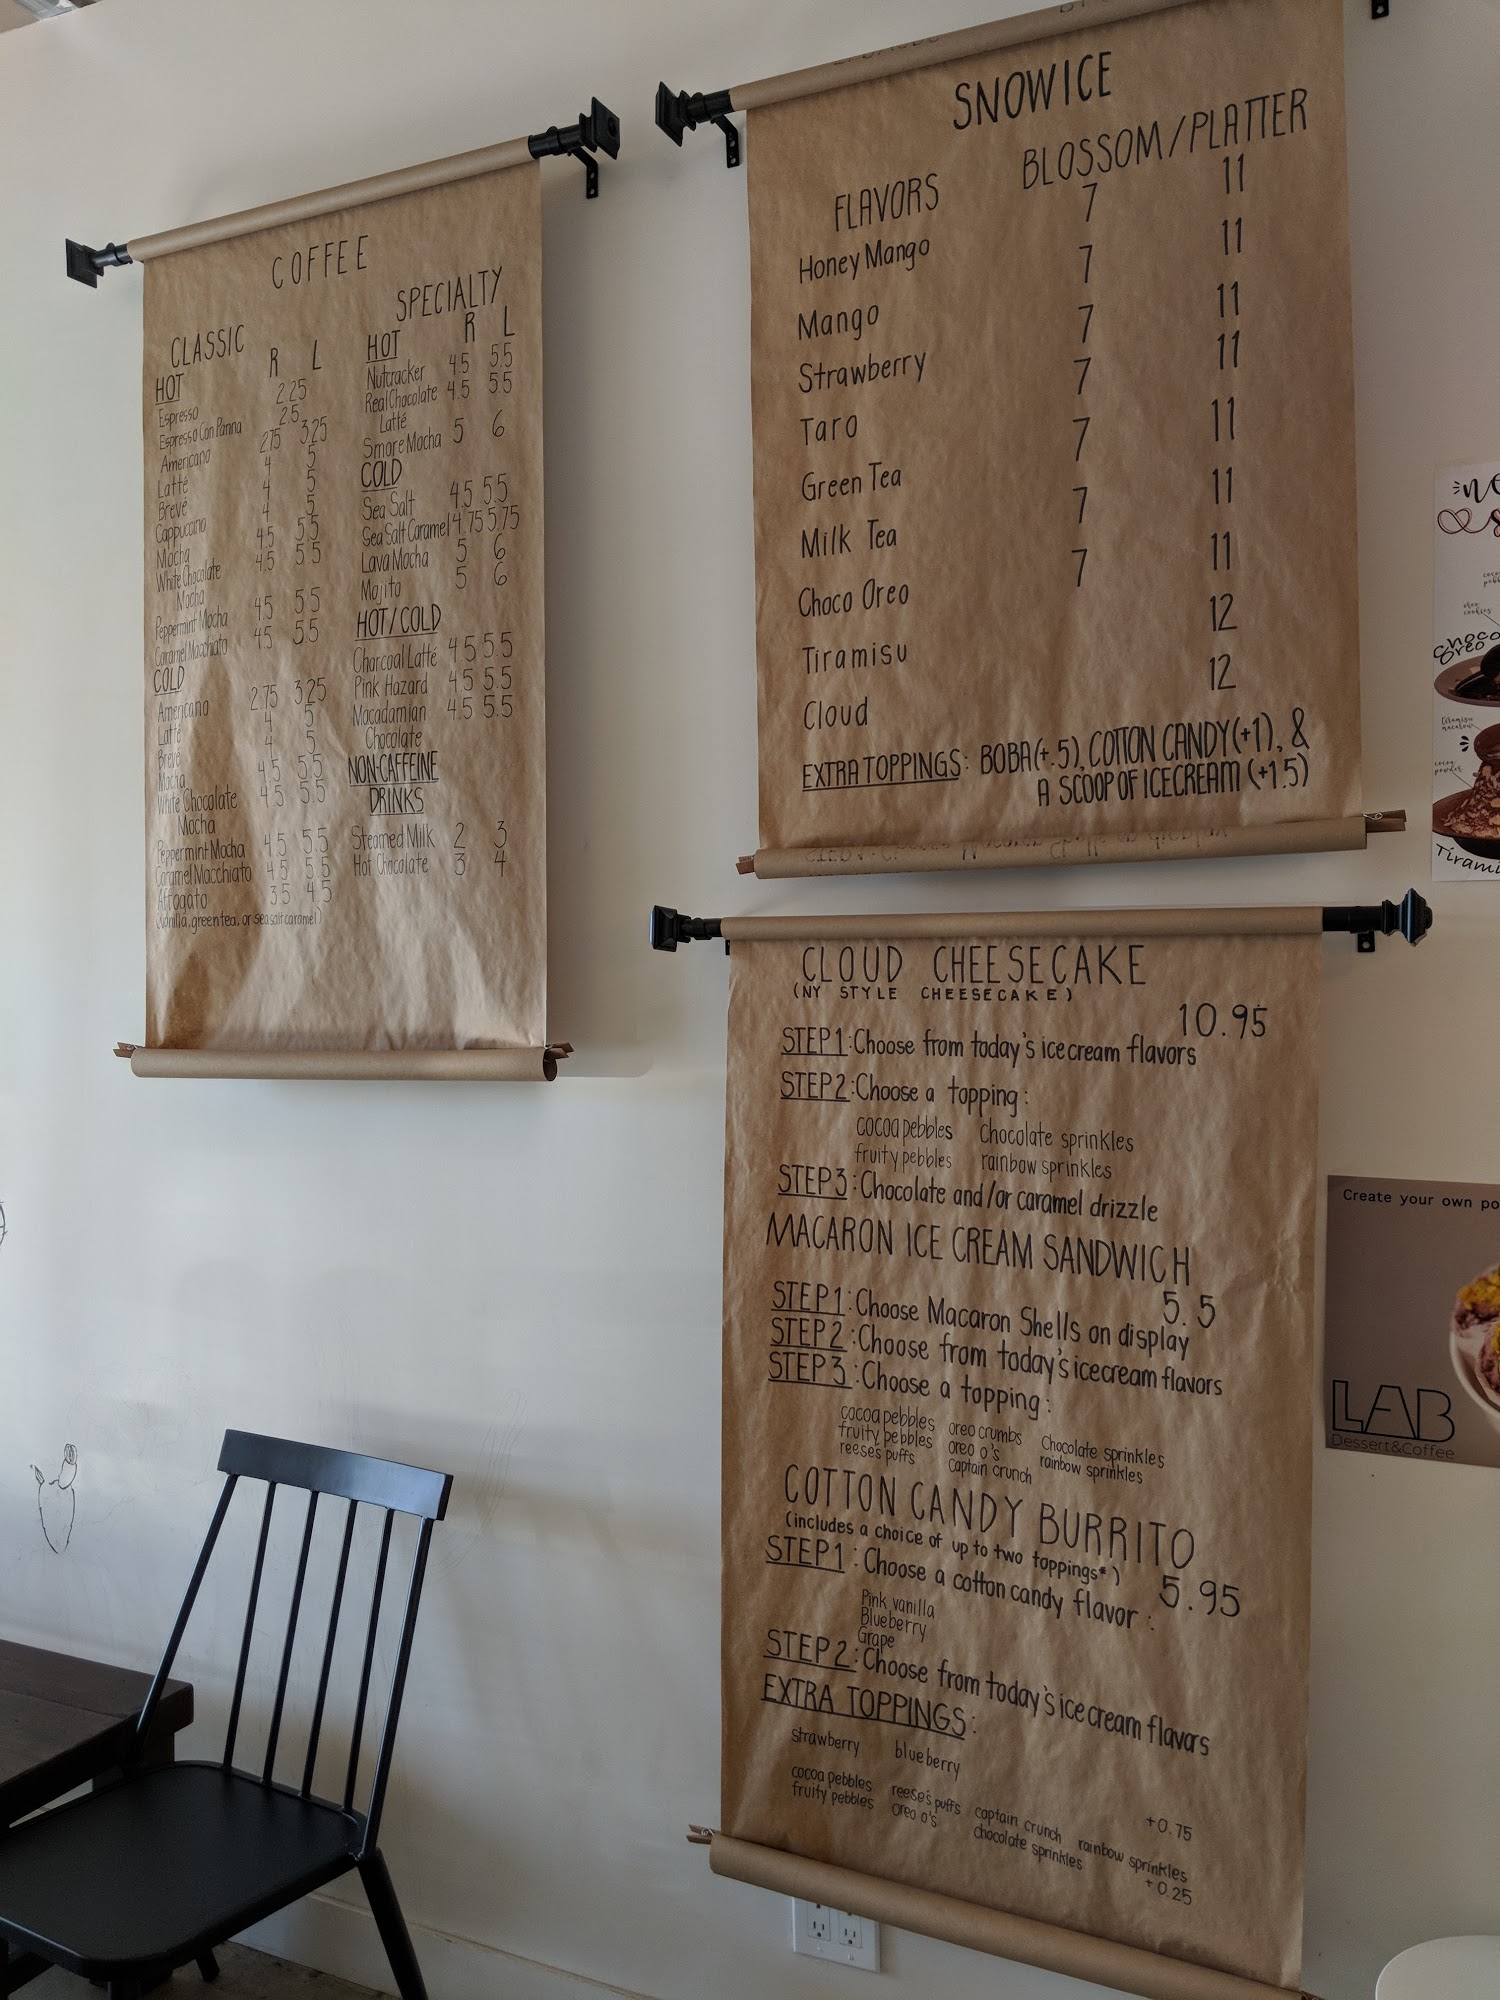 COFFEE
CLASSIC
R L
HOT
Espresso 2.25
Espresso Con Panna 2.5
Americano 2.75 3.25
Latté 4 5
Brevé 4 5
Cappuccino 4 5
Mocha 4.5 5.5
White Chocolate 4.5 5.5
Mocha
Peppermint Mocha 4.5 5.5
Caramel Macchiato 4.5 5.5
COLD
Americano 2.75 3.25
Latté 4 5
Brevé 4 5
Mocha 4.5 5.5
White Chocolate 4.5 5.5
Mocha
Peppermint Mocha 4.5 5.5
Caramel Macchiato 4.5 5.5
Affogato 3.5 4.5
(Vanilla, green tea, or sea salt caramel)
SPECIALTY
HOT R L
Nutcracker 4.5 5.5
Real Chocolate 4.5 5.5
Latté
Smore Mocha 5 6
COLD
Sea Salt 4.5 5.5
Sea Salt Caramel 4.75 5.75
Lava Mocha 5 6
Mojito 5 6
HOT/COLD
Charcoal Latté 4.5 5.5
Pink Hazard 4.5 5.5
Macadamian 4.5 5.5
Chocolate
NON-CAFFEINE
DRINKS
Steamed Milk 2 3
Hot Chocolate 3 4
SNOWICE
FLAVORS BLOSSOM/PLATTER
Honey Mango 7 11
Mango 7 11
Strawberry 7 11
Taro 7 11
Green Tea 7 11
Milk Tea 7 11
Choco Oreo 7 11
Tiramisu 12
Cloud 12
EXTRA TOPPINGS: BOBA(+.5), COTTON CANDY(+1), &
A SCOOP OF ICECREAM (+1.5)
CLOUD CHEESECAKE
(NY STYLE CHEESECAKE)
10.95
STEP1: Choose from today's icecream flavors
STEP2: Choose a topping:
cocoa pebbles Chocolate sprinkles
fruity pebbles rainbow sprinkles
STEP3: Chocolate and/or caramel drizzle
MACARON ICE CREAM SANDWICH
5.5
STEP1: Choose Macaron Shells on display
STEP2: Choose from today's icecream flavors
STEP3: Choose a topping:
cocoa pebbles oreo crumbs Chocolate sprinkles
fruity pebbles oreo o's rainbow sprinkles
reese's puffs Captain crunch
COTTON CANDY BURRITO
(includes a choice of up to two toppings*)
5.95
STEP1: Choose a cotton candy flavor:
Pink vanilla
Blueberry
Grape
STEP2: Choose from today's ice cream flavors
EXTRA TOPPINGS:
strawberry blueberry
+0.75
cocoa pebbles reese's puffs captain crunch rainbow sprinkles
fruity pebbles oreo o's chocolate sprinkles
+0.25
cocoa
oreo
cookies
choco
oreo
tiramisu
macaron
cocoa
powder
Tirami
Create your own po
LAB
Dessert&Coffee